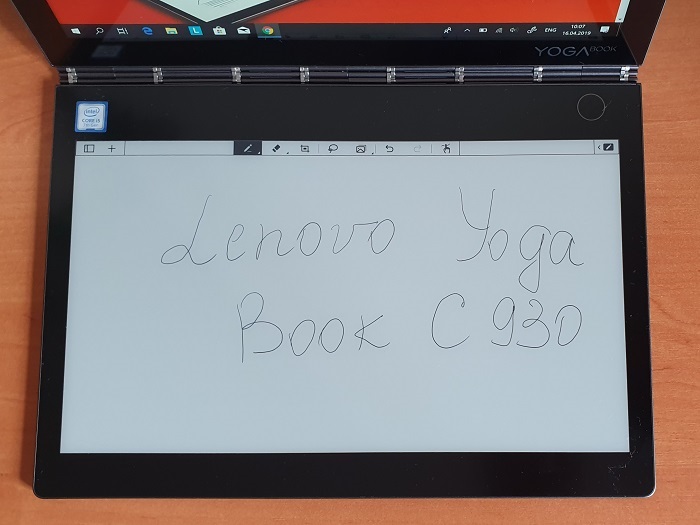 10:07
ENG
16.04.2019
YOGA BOOK
intel
CORE i5
Lenovo Yoga
Book C930